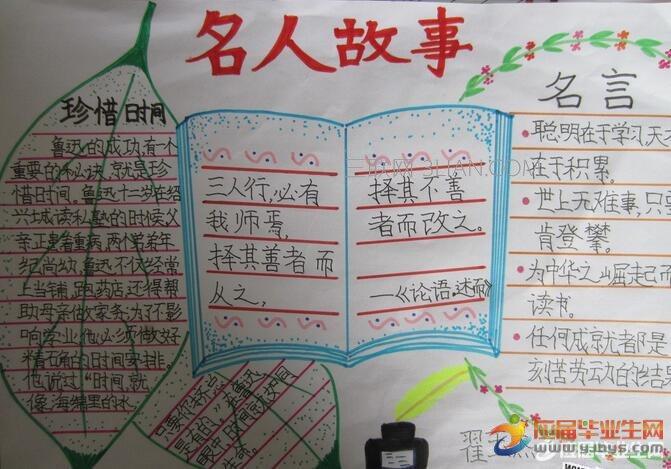 名人故事
珍惜时间
鲁迅的成功,有个
重要的秘诀,就是珍
惜时间。鲁迅十二岁在绍
兴城读私塾的时候,父
亲正患着重病,两个弟弟年
纪尚幼,鲁迅不仅经常
上当铺,跑药店,还得帮
助母亲做家务;为了不影
响学业,他必须做好
精确的时间安排。
他说过:"时间,就
像海绵里的水
三人行,必有
我师焉,
择其善者而
从之,
择其不善
者而改之。
—《论语·述而》
名言
聪明在于学习,天
在于积累。
世上无难事,只
肯登攀。
为中华之崛起而
读书。
任何成就都是
刻苦劳动的结
应届毕业生网